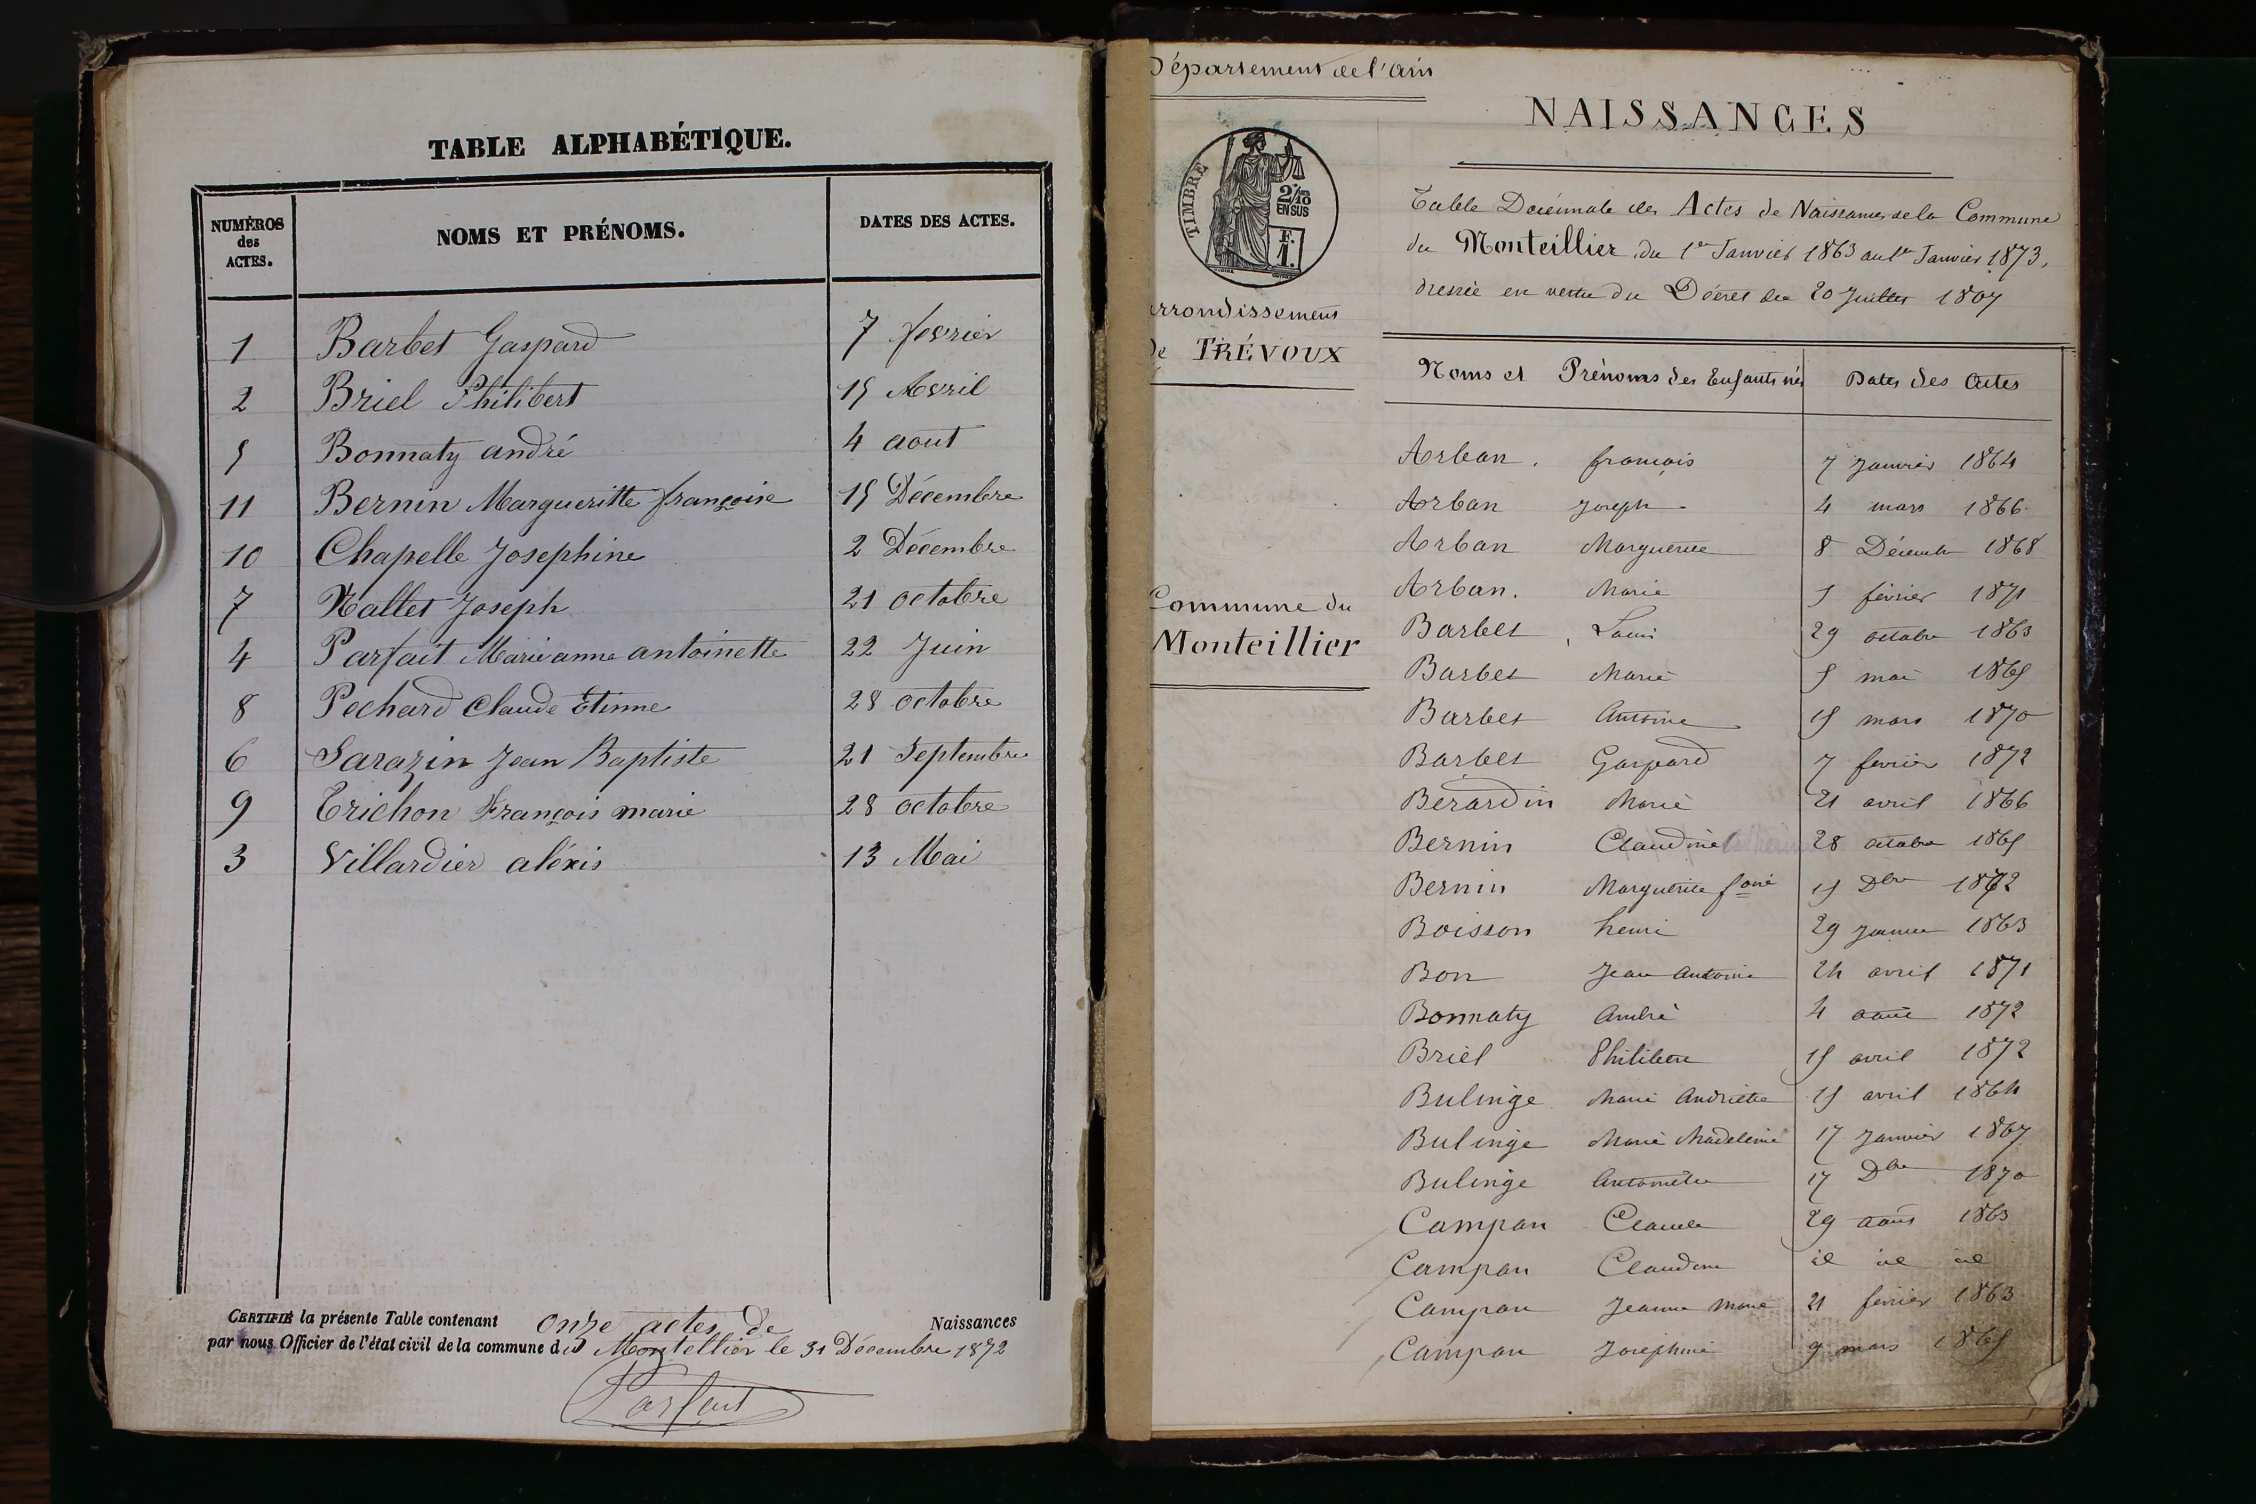 TABLE ALPHABÉTIQUE.
NUMÉROS des ACTES. NOMS ET PRÉNOMS. DATES DES ACTES.
1 Barbet Gaspard 7 fevrier
2 Briel Philibert 15 Avril
5 Bonnaty andré 4 aout
11 Bernin Margueritte françoise 15 Décembre
10 Chapelle Josephine 2 Décembre
7 Nallet Joseph 21 octobre
4 Parfait Marieanne antoinette 22 Juin
8 Pechard Claude Etinne 28 octobre
6 Sarazin Jean Baptiste 21 Septembre
9 Trichon François marie 28 octobre
3 Villardier aléxis 13 Mai
CERTIFIÉ la présente Table contenant onze actes de Naissances
par nous Officier de l'état civil de la commune du Montellier le 31 Décembre 1872
Parfait
Département de l'Ain
TIMBRE
2/10
EN SUS
F.
1.
arrondissement
de TRÉVOUX
Commune du
Monteillier
NAISSANCES
Table Décénnale des Actes de Naissances de la Commune
du Monteillier du 1er Janvier 1863 au 1er Janvier 1873,
dressée en vertu du Décret du 20 Juillet 1807
Noms et Prénoms des Enfants nés Dates des Actes
Arban . françois 7 Janvier 1864
Arban Joseph 4 mars 1866
Arban Marguerite 8 Décembre 1868
Arban. Marie 5 février 1871
Barbet , Louis 29 octobre 1863
Barbet Marie 5 mai 1865
Barbet Antoine 15 mars 1870
Barbet Gaspard 7 fevrier 1872
Berardin Marie 21 avril 1866
Bernin Claudine 28 octobre 1865
Bernin Marguerite foise 15 Dbre 1872
Boisson henri 29 Janvier 1863
Bon Jean Antoine 24 avril 1871
Bonnaty André 4 août 1872
Briel Philibert 15 avril 1872
Bulinge Marie Andriette 15 avril 1864
Bulinge Marie Madeleine 17 Janvier 1867
Bulinge Antoinette 17 Dbre 1870
Campan Claude 29 août 1863
Campan Claudine id id id
Campan Jeanne Marie 21 février 1863
Campan Joséphine 9 mars 1865